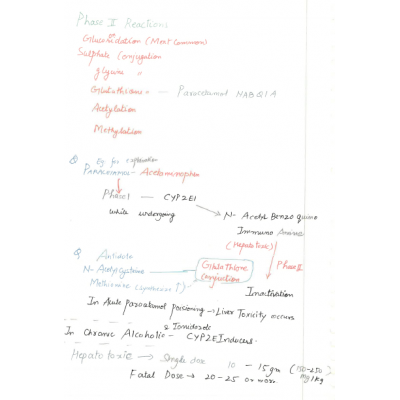 Phase II Reactions
Glucoronidation (Most Common)
Sulphate Conjugation
glycine "
Glutathione " – Paracetamol NABQIA
Acetylation
Methylation
Q Eg for explanation
PARACETAMOL – Acetominophen
Phase I — CYP2E1
while undergoing → N- Acetyl Benzo quino
Immuno Amines
(Hepatotoxic)
Phase II
Q Antidote
N- Acetylcysteine
Glutathione Conjugation
Methionine (synthesis ↑)
Inactivation
In Acute Paracetamol poisoning → Liver Toxicity occurs
In Chronic Alcoholic – CYP2E Inducer.
Hepatotoxic → Single dose 10 – 15 gm (150-250 mg/kg)
Fatal Dose → 20 – 25 or more.